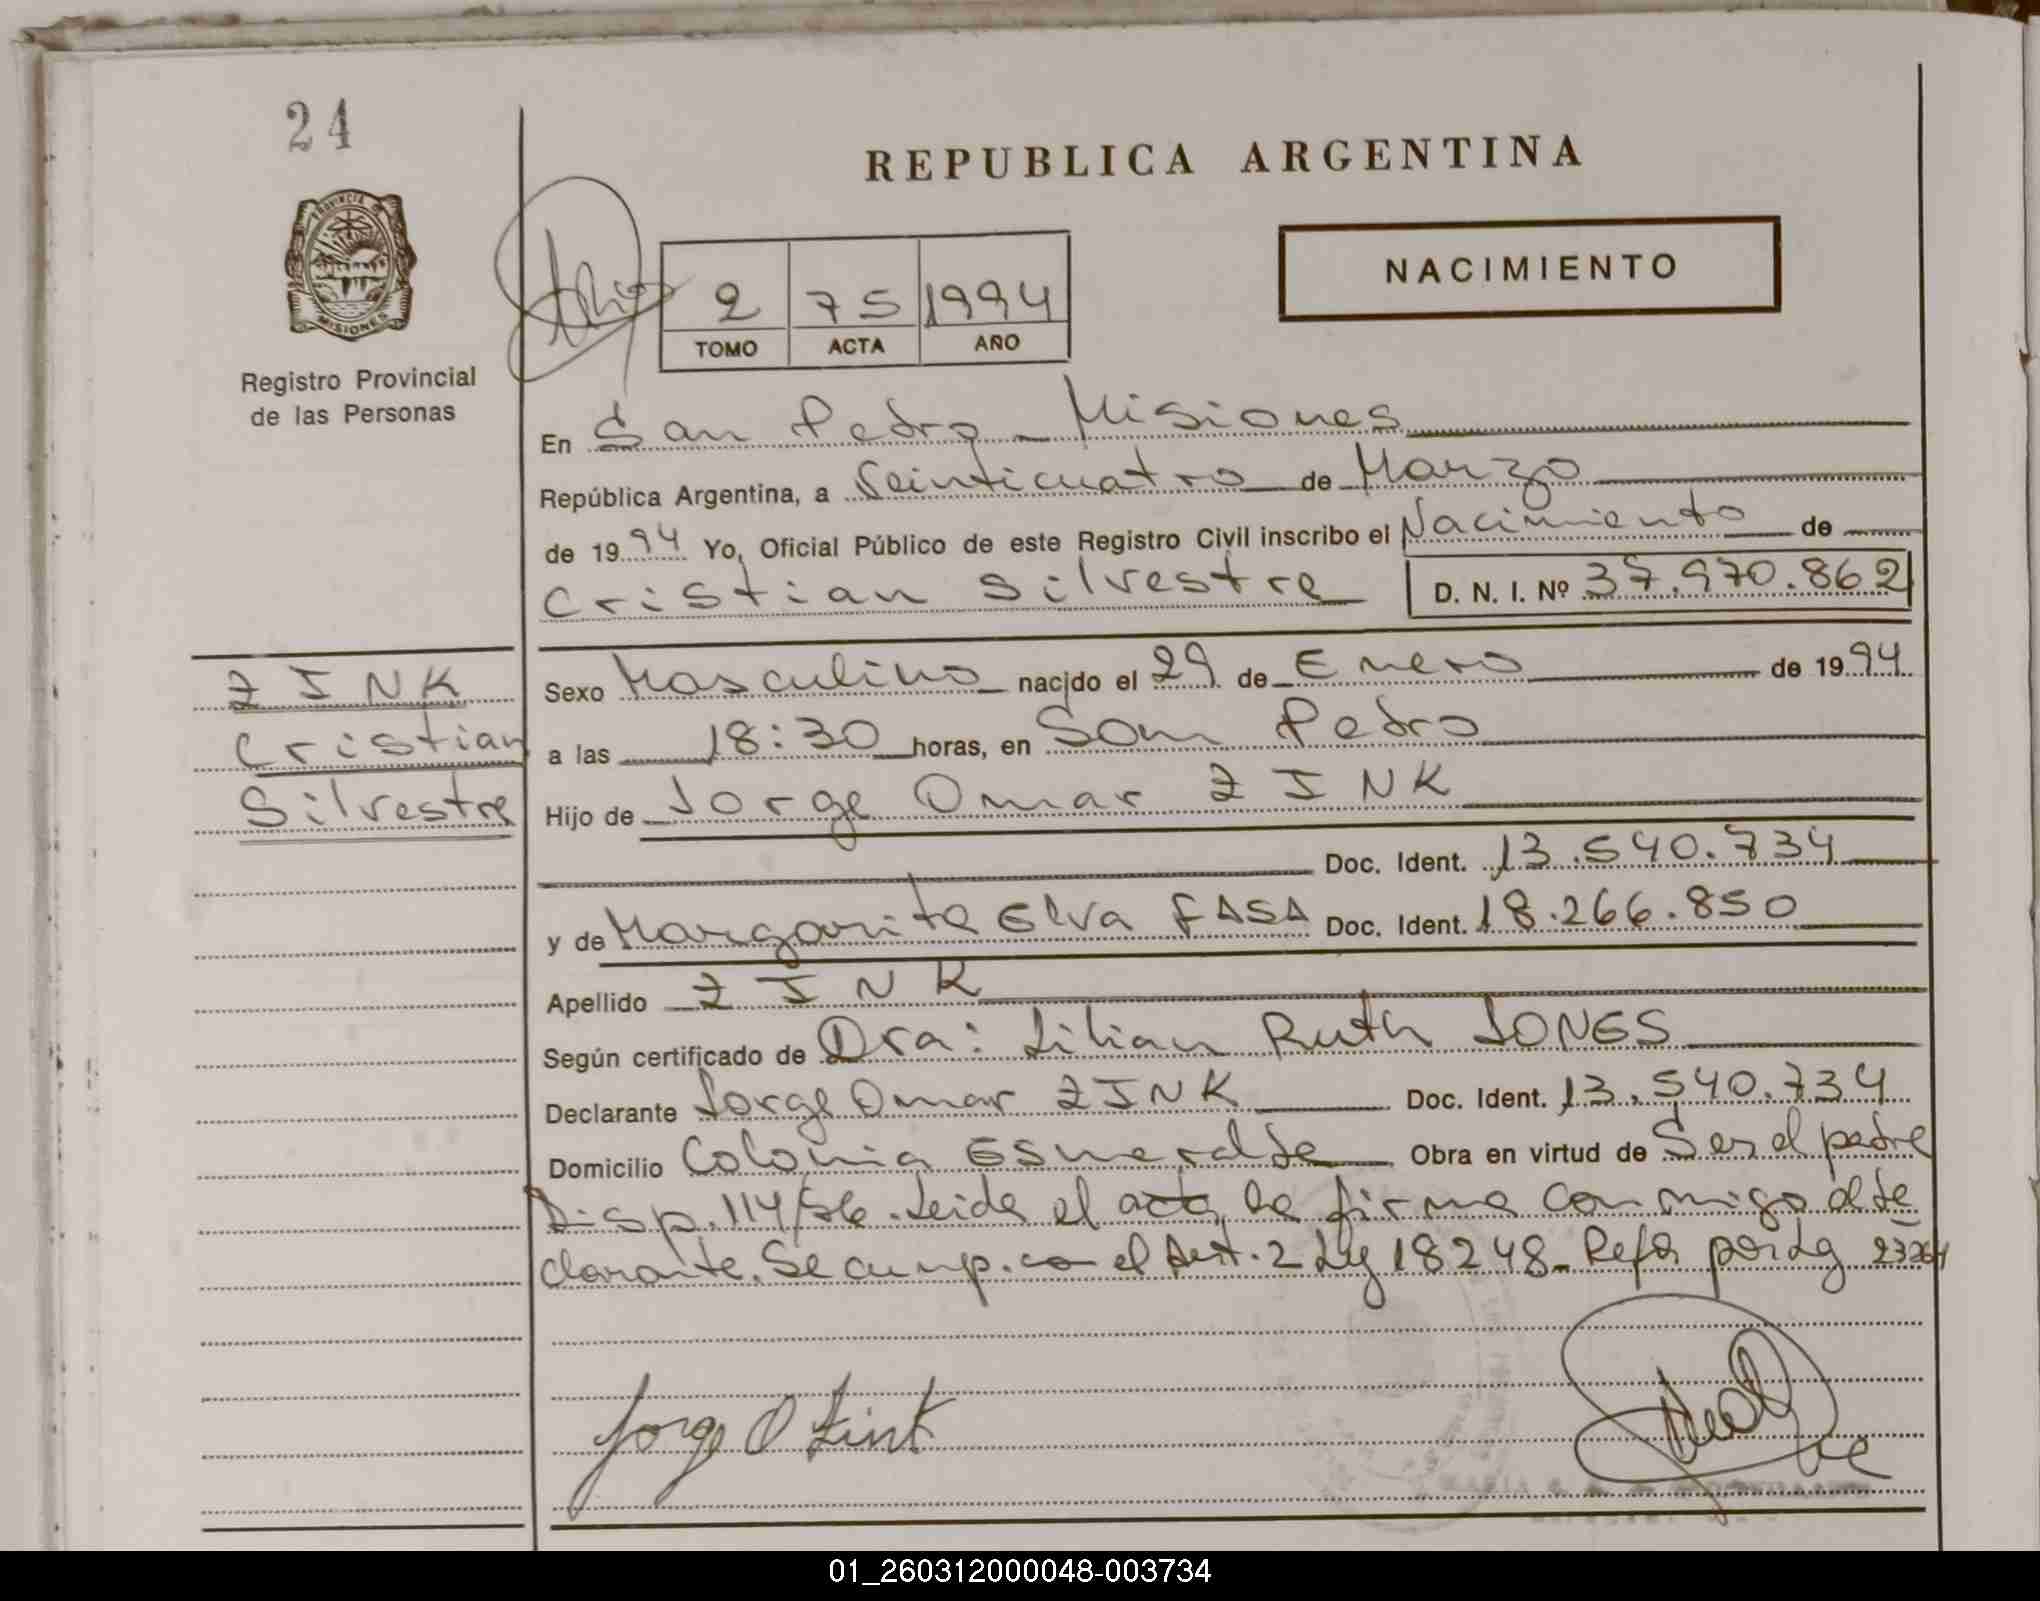 24
REPUBLICA ARGENTINA
PROVINCIA DE
MISIONES
Registro Provincial
de las Personas
2 75 1994
TOMO ACTA AÑO
NACIMIENTO
En San Pedro - Misiones
República Argentina, a Veinticuatro de Marzo
de 1994 Yo, Oficial Público de este Registro Civil inscribo el Nacimiento de
Cristian Silvestre D. N. I. Nº 37.970.862
ZINK
Cristian
Silvestre
Sexo Masculino nacido el 29 de Enero de 1994
a las 18:30 horas, en San Pedro
Hijo de Jorge Omar ZINK
Doc. Ident. 13.540.734
y de Margarita Elva FASA Doc. Ident. 18.266.850
Apellido ZINK
Según certificado de Dra: Lilian Ruth JONES
Declarante Jorge Omar ZINK Doc. Ident. 13.540.734
Domicilio Colonia Esmeralda Obra en virtud de Ser el padre
Disp. 114/86. Leida el acta, la firma conmigo el de
clarante. Se cump. con el Art. 2 Ley 18248- Refor por Ley
Jorge O Zink
01_260312000048-003734